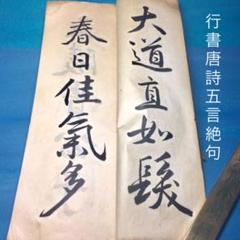 大道直如髮
春日佳氣多
行書唐詩五言絶句